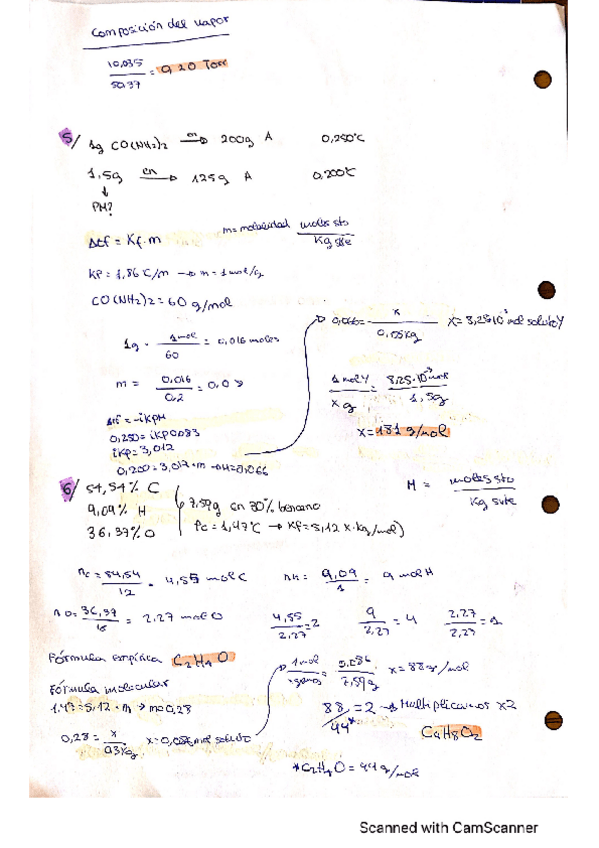 Composición del vapor
10,035 / 50,37 = 0,20 Torr
5/ 1g CO(NH2)2 en → 200g A 0,250°C
1,5g en → 125g A 0,200°C
↓
PM?
Δtf = Kf·m m = molalidad moles sto / Kg ste
CO(NH2)2 = 60 g/mol
1g · 1mol / 60 = 0,016 moles
m = 0,016 / 0,2 = 0,0
0,066 = x / 0,125Kg x = 8,25·10⁻³ mol soluto Y
1 mol Y / x g = 8,25·10⁻³ mol / 1,5g
x = 181 g/mol
0,250 = iKf 0,083
iKf = 3,012
0,200 = 3,012·m → m = 0,066
6/ 54,54% C
9,09% H
36,37% O
7,59g en 30% benceno
ΔC = 1,47°C → Kf = 5,12 K·kg/mol)
M = moles sto / Kg svte
nC = 54,54 / 12 = 4,55 mol C nH = 9,09 / 1 = 9 mol H
nO = 36,37 / 16 = 2,27 mol O 4,55 / 2,27 = 2 9 / 2,27 = 4 2,27 / 2,27 = 1
Fórmula empírica C2H4O
Fórmula molecular
1,47 = 5,12 · m → m = 0,28
0,28 = x / 0,3Kg x = 0,086 mol soluto
1mol / x gramos = 0,086 / 7,59g x = 88 g/mol
88 / 44* = 2 → Multiplicamos x2
C4H8O2
*C2H4O = 44 g/mol
Scanned with CamScanner